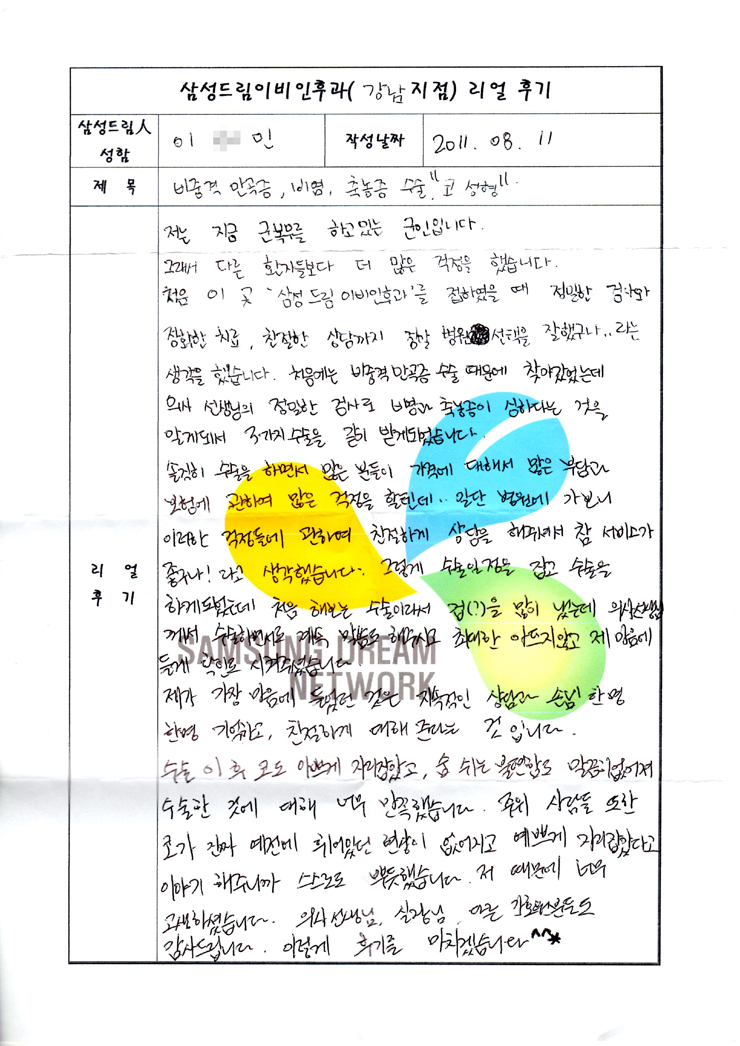 삼성드림이비인후과( 강남 지점) 리얼 후기
삼성드림人 성함
이 민
작성날짜
2011. 08. 11
제 목
비중격 만곡증, 비염, 축농증 수술 "코 성형"
리 얼 후 기
저는 지금 군복무를 하고있는 군인입니다.
그래서 다른 환자들보다 더 많은 걱정을 했습니다.
처음 이 곳 '삼성드림이비인후과'를 접하였을 때 정밀한 검사와
정확한 치료, 친절한 상담까지 정말 병원 선택을 잘했구나..라는
생각을 했습니다. 처음에는 비중격만곡증 수술 때문에 찾아갔었는데
의사 선생님의 정밀한 검사로 비염과 축농증이 심하다는 것을
알게되서 3가지 수술을 같이 받게되었습니다.
솔직히 수술을 하면서 많은 분들이 가격에 대해서 많은 부담과
보험에 관하여 많은 걱정을 할텐데.. 일단 병원에 가보니
이러한 걱정들에 관하여 친절하게 상담을 해줘서 참 서비스가
좋구나! 라고 생각했습니다. 그렇게 수술일정을 잡고 수술을
하게되었는데 처음 해보는 수술이라서 겁(?)을 많이 났는데 의사선생님
께서 수술하면서도 계속 말씀도 해주시고 최대한 아프지않고 제 마음에
들게 시켜주셨습니다
제가 가장 마음에 들었던 것은 지속적인 상담과 손님 한명
한명 기억하고, 친절하게 대해 준다는 것 입니다.
수술 이후 코도 이쁘게 자리잡았고, 숨 쉬는 불편함도 말끔히없어져
수술한 것에 대해 너무 만족했습니다. 주위 사람들 또한
코가 진짜 예전에 휘어있던 현상이 없어지고 예쁘게 자리잡았다고
이야기 해주니까 스스로 뿌듯했습니다. 저 때문에 너무
고생하셨습니다. 의사선생님, 실장님, 다른 간호사분들도
감사드립니다. 이렇게 후기를 마치겠습니다 ^^*
SAMSUNG DREAM
NETWORK